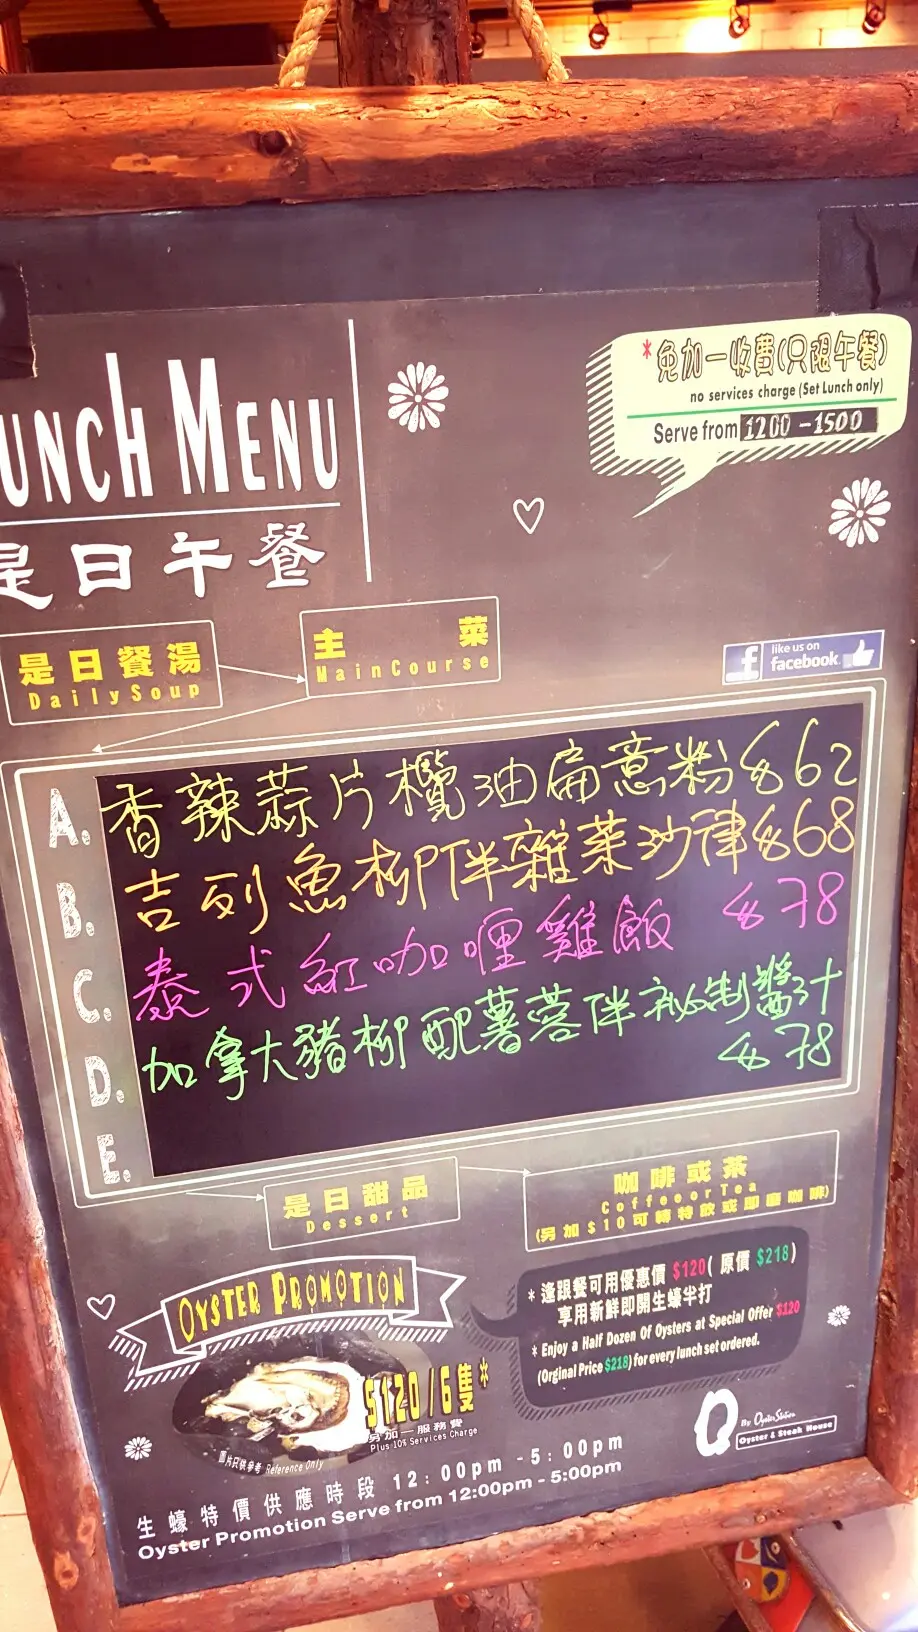 UNCH MENU
是日午餐
*免加一收費(只限午餐)
no services charge (Set Lunch only)
Serve from 1200 - 1500
是日餐湯
Daily Soup
主菜
Main Course
f like us on
facebook
A. 香辣蒜片欖油扁意粉 $62
B. 吉列魚柳伴雜菜沙律 $68
C. 泰式紅咖喱雞飯 $78
D. 加拿大豬柳配薯蓉伴秘制醬汁
$78
E.
是日甜品
Dessert
咖啡或茶
Coffee or Tea
(另加$10可轉特飲或即磨咖啡)
OYSTER PROMOTION
$120/6隻*
另加一服務費
Plus 10% Services Charge
圖片只供參考 Reference Only
* 逢跟餐可用優惠價 $120( 原價 $218)
享用新鮮即開生蠔半打
* Enjoy a Half Dozen Of Oysters at Special Offer $120
(Orginal Price $218) for every lunch set ordered.
By Oyster Station
Oyster & Steak House
生蠔特價供應時段 12:00pm - 5:00pm
Oyster Promotion Serve from 12:00pm - 5:00pm